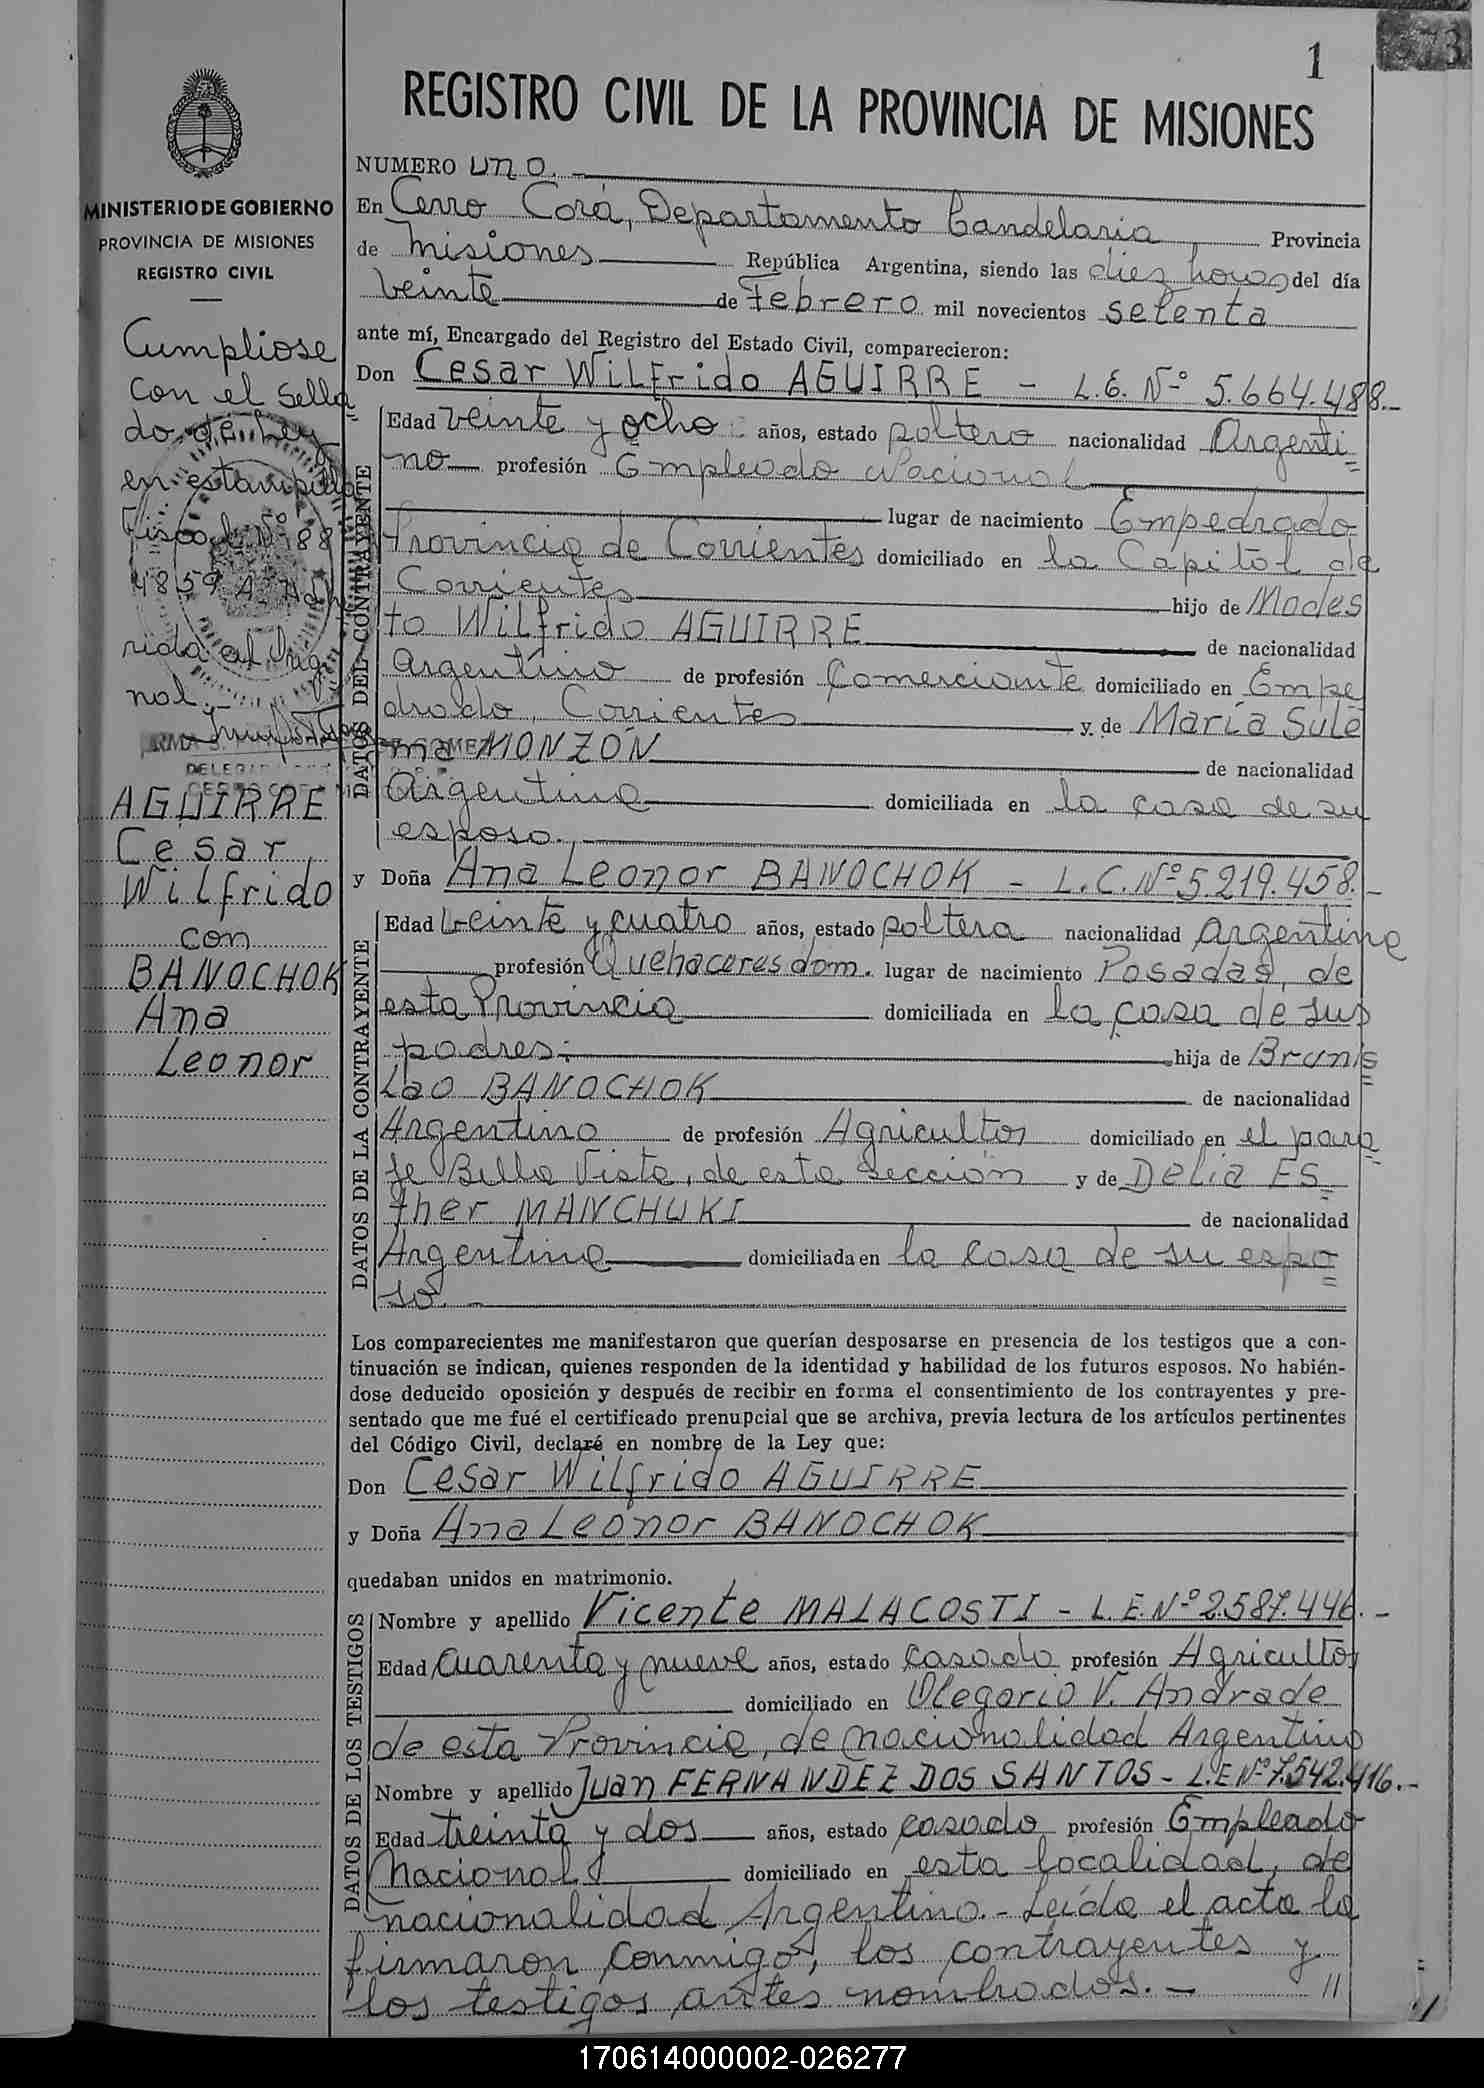 1
REGISTRO CIVIL DE LA PROVINCIA DE MISIONES
MINISTERIO DE GOBIERNO
PROVINCIA DE MISIONES
REGISTRO CIVIL
Cumpliose
con el sella
do de ley
en estampilla
Fiscal Nº 88
4859 A, Adhe
rida al
nal.-
DELEG
AGUIRRE
Cesar
Wilfrido
con
BANOCHOK
Ana
Leonor
NUMERO uno.-
En Cerro Corá, Departamento Candelaria Provincia
de Misiones República Argentina, siendo las diez horas del día
veinte de Febrero mil novecientos setenta
ante mí, Encargado del Registro del Estado Civil, comparecieron:
Don Cesar Wilfrido AGUIRRE - L.E. Nº 5.664.488.-
DATOS DEL CONTRAYENTE
Edad veinte y ocho años, estado soltero nacionalidad Argenti=
no profesión Empleado Nacional
lugar de nacimiento Empedrado
Provincia de Corrientes domiciliado en la Capital de
Corrientes hijo de Modes
to Wilfrido AGUIRRE de nacionalidad
Argentino de profesión Comerciante domiciliado en Empe
drado, Corrientes y de María Sule
ma MONZÓN de nacionalidad
Argentina domiciliada en la casa de su
esposo.-
y Doña Ana Leonor BANOCHOK - L.C. Nº 5.219.458.-
DATOS DE LA CONTRAYENTE
Edad veinte y cuatro años, estado soltera nacionalidad Argentina
profesión Quehaceres dom. lugar de nacimiento Posadas, de
esta Provincia domiciliada en la casa de sus
padres.- hija de Brunis=
lao BANOCHOK de nacionalidad
Argentino de profesión Agricultor domiciliado en el para=
je Bella Vista, de esta sección y de Delia ES=
ther MANCHUKI de nacionalidad
Argentina domiciliada en la casa de su espo=
so.-
Los comparecientes me manifestaron que querían desposarse en presencia de los testigos que a con-
tinuación se indican, quienes responden de la identidad y habilidad de los futuros esposos. No habién-
dose deducido oposición y después de recibir en forma el consentimiento de los contrayentes y pre-
sentado que me fué el certificado prenupcial que se archiva, previa lectura de los artículos pertinentes
del Código Civil, declaré en nombre de la Ley que:
Don Cesar Wilfrido AGUIRRE
y Doña Ana Leonor BANOCHOK
quedaban unidos en matrimonio.
DATOS DE LOS TESTIGOS
Nombre y apellido Vicente MALACOSTI - L.E. Nº 2.587.446.-
Edad Cuarenta y nueve años, estado casado profesión Agricultor
domiciliado en Olegario V. Andrade
de esta Provincia, de nacionalidad Argentino
Nombre y apellido Juan FERNANDEZ DOS SANTOS - L.E Nº 7.542.416.-
Edad treinta y dos años, estado casado profesión Empleado
Nacional domiciliado en esta localidad, de
nacionalidad Argentino.- Leída el acta la
firmaron conmigo, los contrayentes y
los testigos antes nombrados.- //
170614000002-026277